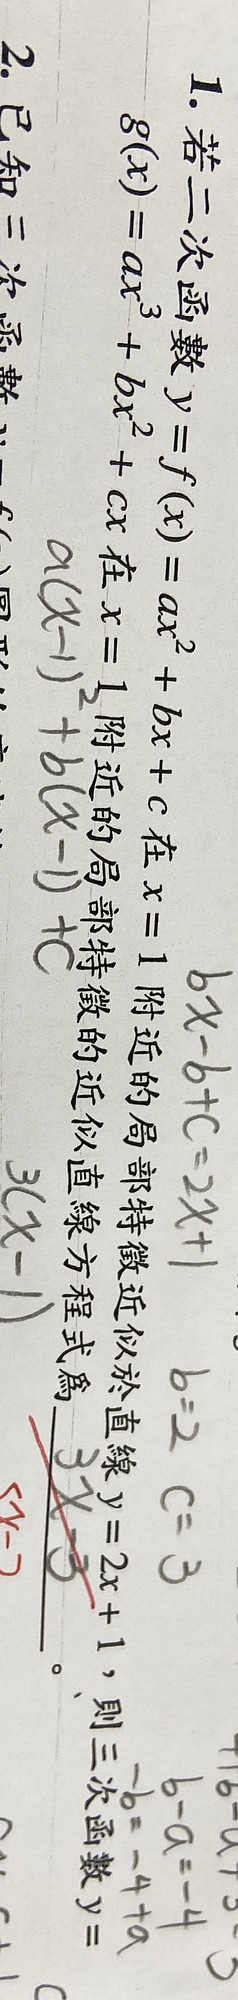 1. 若二次函數 y = f(x) = ax² + bx + c 在 x = 1 附近的局部特徵近似於直線 y = 2x + 1，則三次函數 y =
g(x) = ax³ + bx² + cx 在 x = 1 附近的局部特徵的近似直線方程式為 3x-3 。
bx-b+c=2x+1 b=2 c=3
b-a=-4
-b=-4+a
a(x-1)²+b(x-1)+c
3(x-1)
5x-2
2. 已知三次函數 y = f(x) 圖形